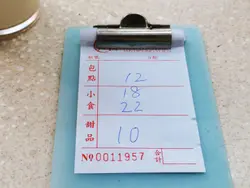 包點 12
小食 18
22
甜品 10
合計
№ 0011957